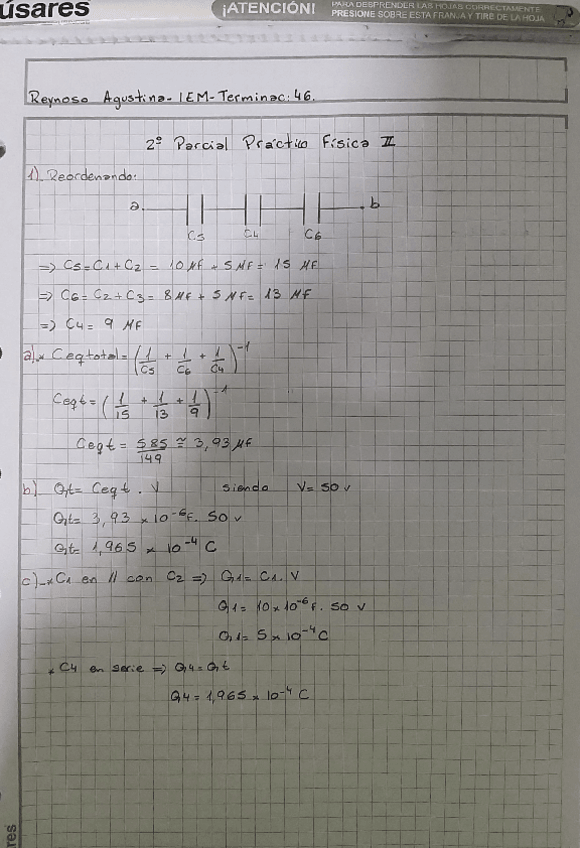 úsares
¡ATENCIÓN!
PARA DESPRENDER LAS HOJAS CORRECTAMENTE
PRESIONE SOBRE ESTA FRANJA Y TIRE DE LA HOJA
Reynoso Agustina - IEM - Terminac: 46.
2º Parcial Práctico Física II
1). Reordenando:
a b
C5 C4 C6
=> C5 = C1 + C2 = 10 μf + 5 μf = 15 μf
=> C6 = C2 + C3 = 8 μf + 5 μf = 13 μf
=> C4 = 9 μf
a).* Ceq total = (1/C5 + 1/C6 + 1/C4)^-1
Ceqt = (1/15 + 1/13 + 1/9)^-1
Ceqt = 585/149 ≅ 3,93 μf
b). Qt = Ceqt . V siendo V = 50 v
Qt = 3,93 × 10^-6 f. 50 v
Qt = 1,965 × 10^-4 C
c)-* C1 en // con C2 => Q1 = C1. V
Q1 = 10 × 10^-6 f. 50 v
Q1 = 5 × 10^-4 C
* C4 en serie => Q4 = Qt
Q4 = 1,965 × 10^-4 C
res